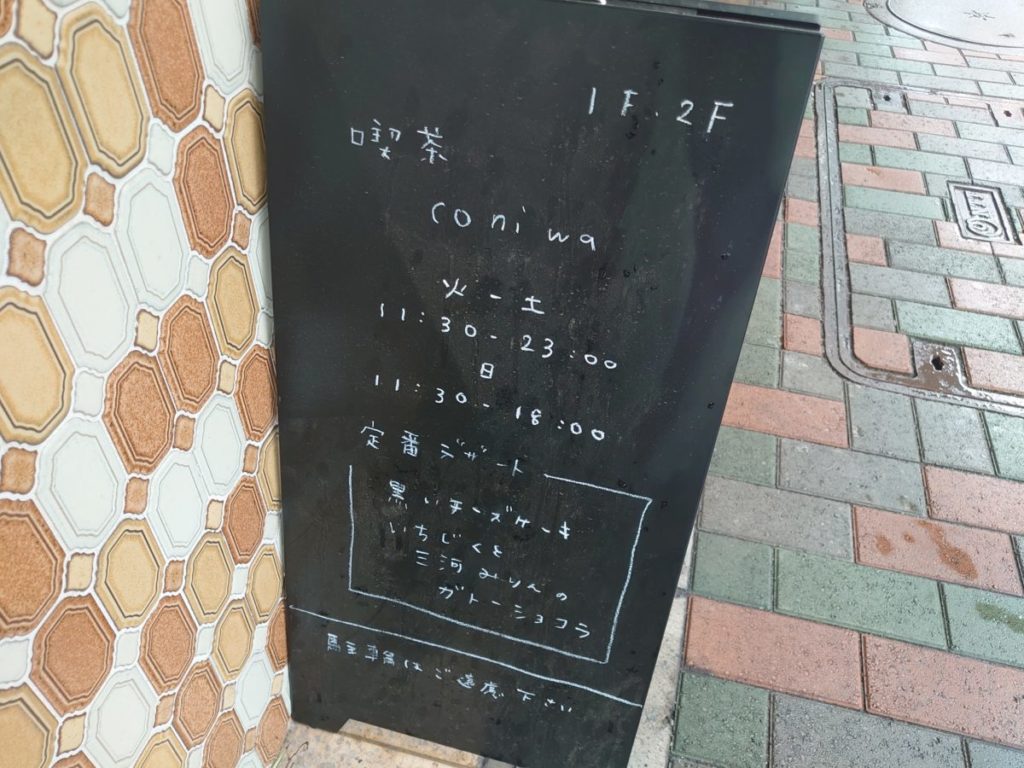 1F.2F
喫茶
coniwa
火-土
11:30-23:00
日
11:30-18:00
定番デザート
黒いチーズケーキ
いちじくと
三河みりんの
ガトーショコラ
駐車はご遠慮下さい